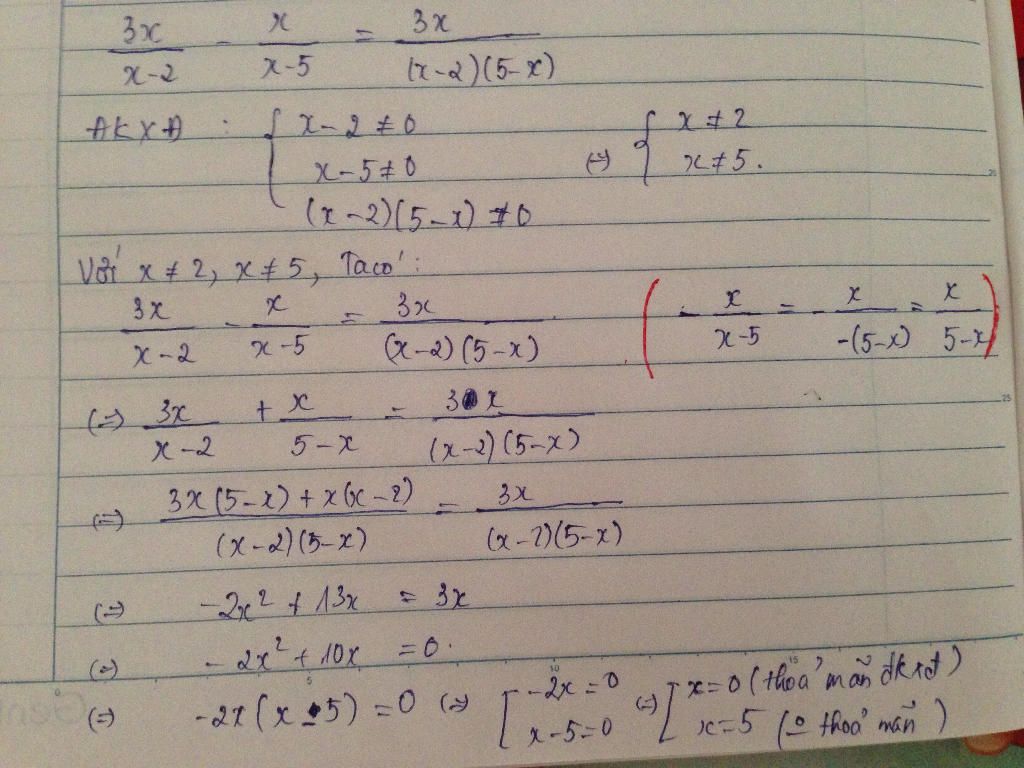 3x/(x-2) - x/(x-5) = 3x/((x-2)(5-x))
ĐKXĐ : { x-2 ≠ 0 ; x-5 ≠ 0 ; (x-2)(5-x) ≠ 0 (=) { x ≠ 2 ; x ≠ 5.
Với x ≠ 2, x ≠ 5, Ta có :
3x/(x-2) - x/(x-5) = 3x/((x-2)(5-x)) ( - x/(x-5) = - x/(-(5-x)) = x/(5-x) )
(=) 3x/(x-2) + x/(5-x) = 3x/((x-2)(5-x))
(=) (3x(5-x) + x(x-2))/((x-2)(5-x)) = 3x/((x-2)(5-x))
(=) -2x² + 13x = 3x
(=) -2x² + 10x = 0.
(=) -2x(x-5) = 0 (=) [ -2x = 0 ; x-5 = 0 (=) [ x = 0 (thoả mãn đkxđ) ; x = 5 (o thoả mãn)